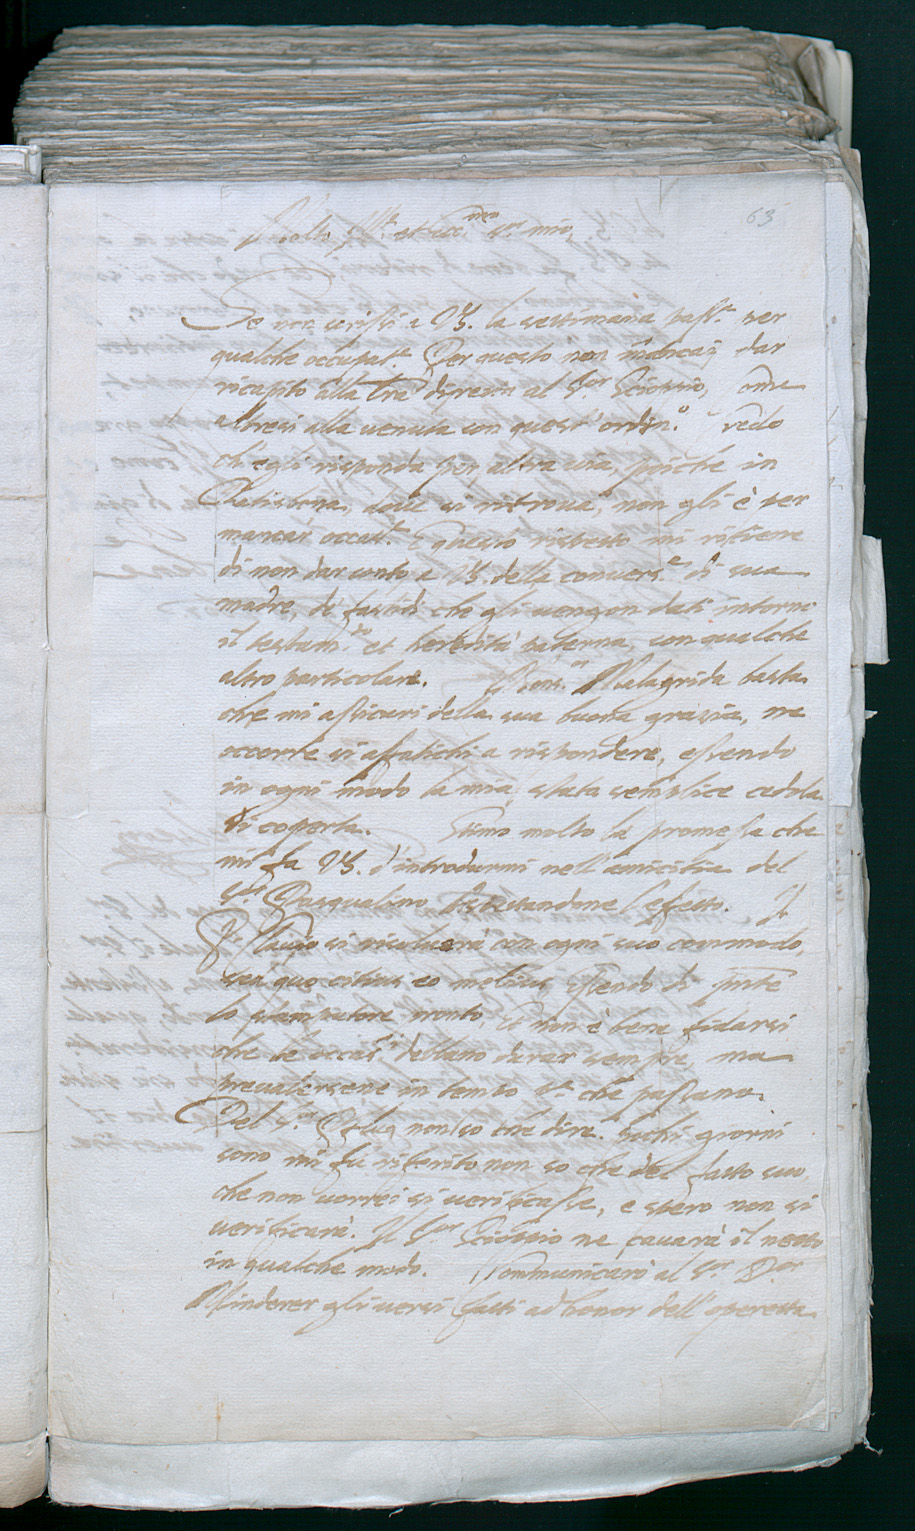 63
Molto Ill.re et ecc.mo S.or mio,
Se non scrissi a VS. la settimana pass.ta per
qualche occupat.e Per questo non mãcai dar
ricapito alla lr̃a diretta al S.or Scioppio, come
altresi alla venuta con quest' ordin.o Credo
ch' egli risponda per altra via, poiche in
Ratisbona, dove si ritrova, non gli è per
mancar occas.e E questo rispetto mi ritiene
di non dar conto a VS. della convers.e di sua
madre, de fastidi che gli vengon dati intorno
il testam.to et heredità paterna, con qualche
altro particolare. Mons.or Malagrida basta
che mi assicuri della sua buona grazia, ne
occorre si affatichi a rispondere, essendo
in ogni modo la mia, stata semplice cedola
di coperta. Stimo molto la promessa che
mi fa VS. d'introdurmi nell' amicitia del
S.or Pasqualino aspettandone l'effetto. Il
P. si risolverà con ogni suo commodo,
sed quo citius eo melius, essendo di pñte
lo stampatore pronto, et non è bene fidarsi
che le occas.i debbano durar sempre, ma
prevalersene in tempo che passano.
Del S.or non so che dire. Pochi giorni
sono mi fu riferito non so che del fatto suo,
che non vorrei si verificasse, e spero non si
verificarà. Il S.or Scioppio ne cavarà il netto
in qualche modo. Communicarò al S.or D.or
Minderer gli versi fatti ad honor dell' operetta